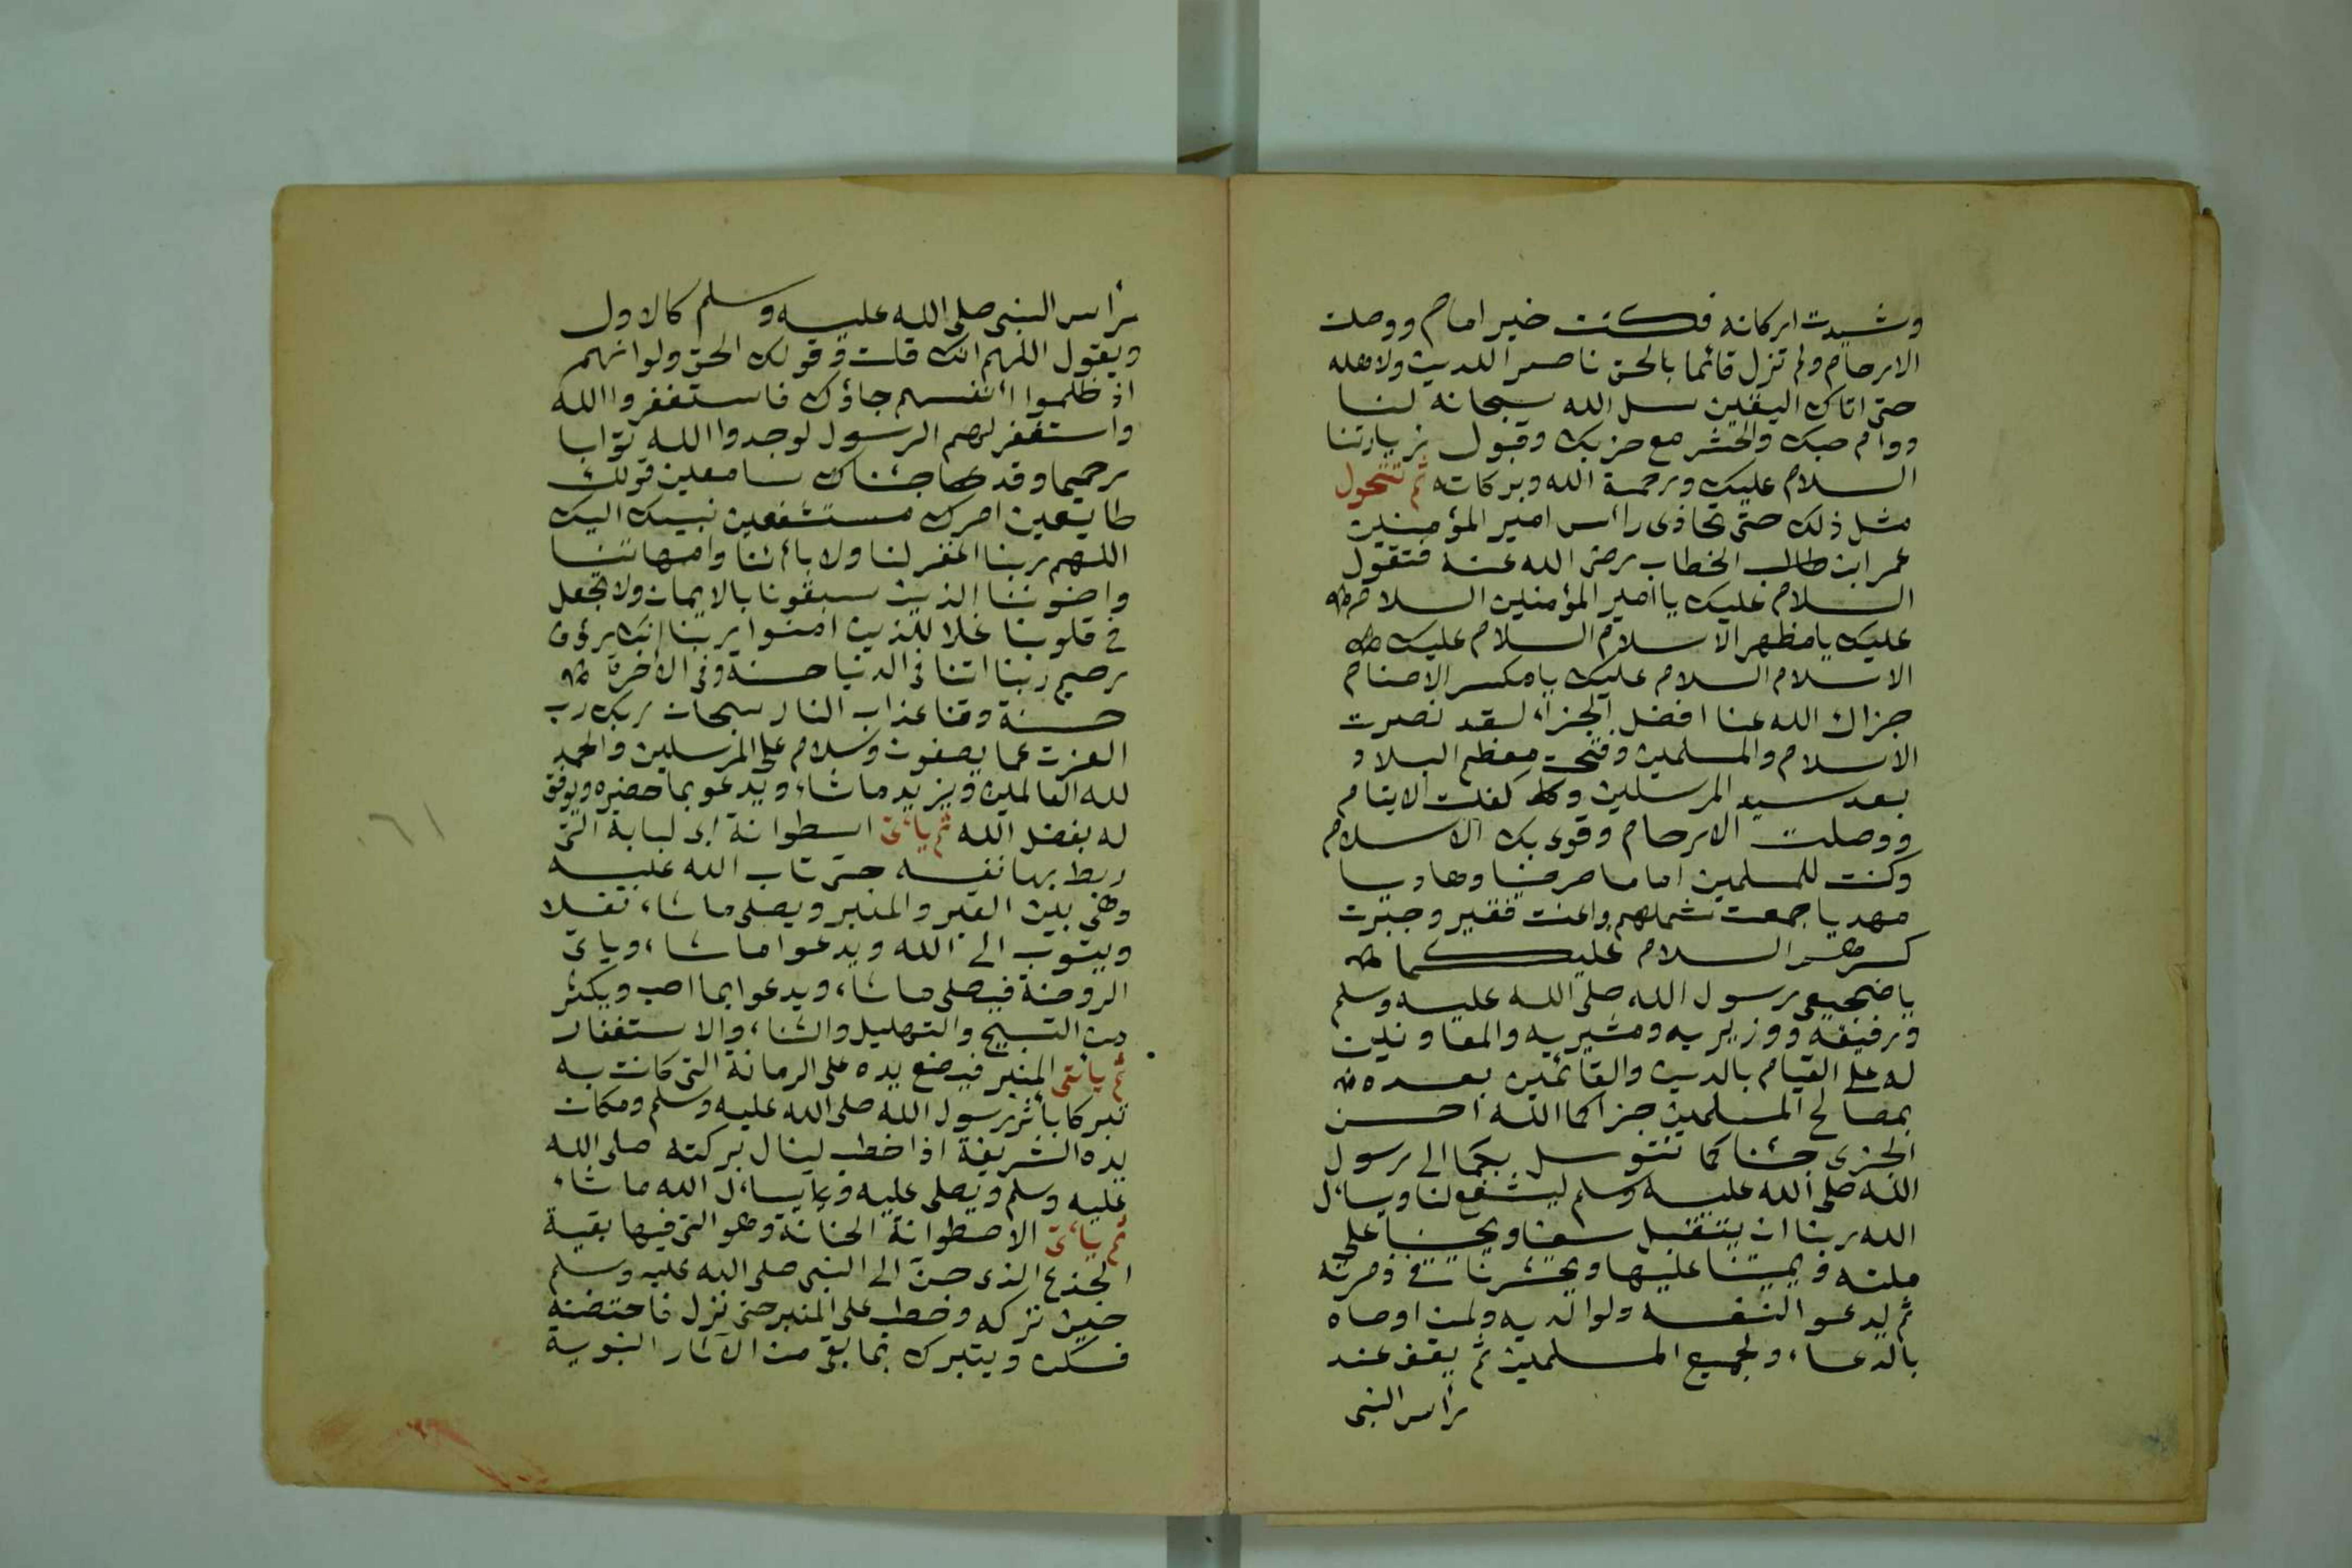 وشيدت اركانه فكنت خير امام ووصلت
الارحام ولم تزل قائما بالحق ناصر اللدين ولاهله
حتى اتاك اليقين سل الله سبحانه لنا
دوام حبك والحشر مع حزبك وقبول زيارتنا
السلام عليك ورحمة الله وبركاته ثم تتحول
مثل ذلك حتى تحاذى رأس امير المؤمنين
عمر ابن طالب الخطاب رضى الله عنه فتقول
السلام عليك يا امير المؤمنين السلام
عليك يا مظهر الاسلام السلام عليك
الاسلام السلام عليك يا مكسر الاصنام
جزاك الله عنا افضل الجزاء لقد نصرت
الاسلام والمسلمين وفتحت معظم البلاد
بعد سيد المرسلين وكفلت الايتام
ووصلت الارحام وقوى بك الاسلام
وكنت للمسلمين اماما مرضيا وهاديا
مهديا جمعت شملهم واعنت فقير وجبرت
كسرهم السلام عليكما
يا ضجيعى رسول الله صلى الله عليه وسلم
ورفيقه ووزيريه ومشيريه والمعاونين
له على القيام بالدين والقائمين بعده
بمصالح المسلمين جزاكما الله احسن
الجزى جئناكما نتوسل بكما الى رسول
الله صلى الله عليه وسلم ليشفع لنا ويسأل
الله ربنا ان يتقبل سعينا ويحينا على
ملته ويميتنا عليها ويحشرنا فى زمرته
ثم يدعو النفسه ولوالديه ولمن اوصاه
بالدعاء ولجميع المسلمين ثم يقف عند
رأس النبى
رأس النبى صلى الله عليه وسلم كالاول
ويقول اللهم انك قلت وقولك الحق ولو انهم
اذ ظلموا أنفسهم جاؤك فاستغفروا الله
واستغفر لهم الرسول لوجدوا الله توابا
رحيما وقد جئناك سامعين قولك
طايعين امرك مستشفعين نبيك اليك
اللهم ربنا اغفر لنا ولابائنا وامهاتنا
واخوننا الذين سبقونا بالايمان ولا تجعل
فى قلوبنا غلا للذين امنوا ربنا انك رؤف
رحيم ربنا اتنا فى الدنيا حسنة وفى الاخرة
حسنة وقنا عذاب النار سبحان ربك رب
العزت عما يصفون وسلام على المرسلين والحمد
لله العالمين ويزيد ماشاء ويدعو بما حضره ويوفق
له بفضل الله ثم يأتى اسطوانة ابى لبابة التى
ربط بها نفسه حتى تاب الله عليه
وهى بين القبر والمنبر ويصلى ماشاء نفلا
ويتوب الى الله ويدعوا ماشاء وياتى
الروضة فيصلى ماشاء ويدعوا بما احب ويكثر
من التسبيح والتهليل والثناء والاستغفار
ثم يأتى المنبر فيضع يده على الرمانة التى كانت به
تبركا بأثر رسول الله صلى الله عليه وسلم ومكان
يده الشريفة اذا خطب لينال بركته صلى الله
عليه وسلم ويصلى عليه ويسأل الله ماشاء
ثم يأتى الاصطوانة الحنانة وهو التى فيها بقية
الجذع الذى حن الى النبى صلى الله عليه وسلم
حين تركه وخطب على المنبر حتى نزل فاحتضنه
فسكن ويتبرك بما بقى من الآثار النبوية